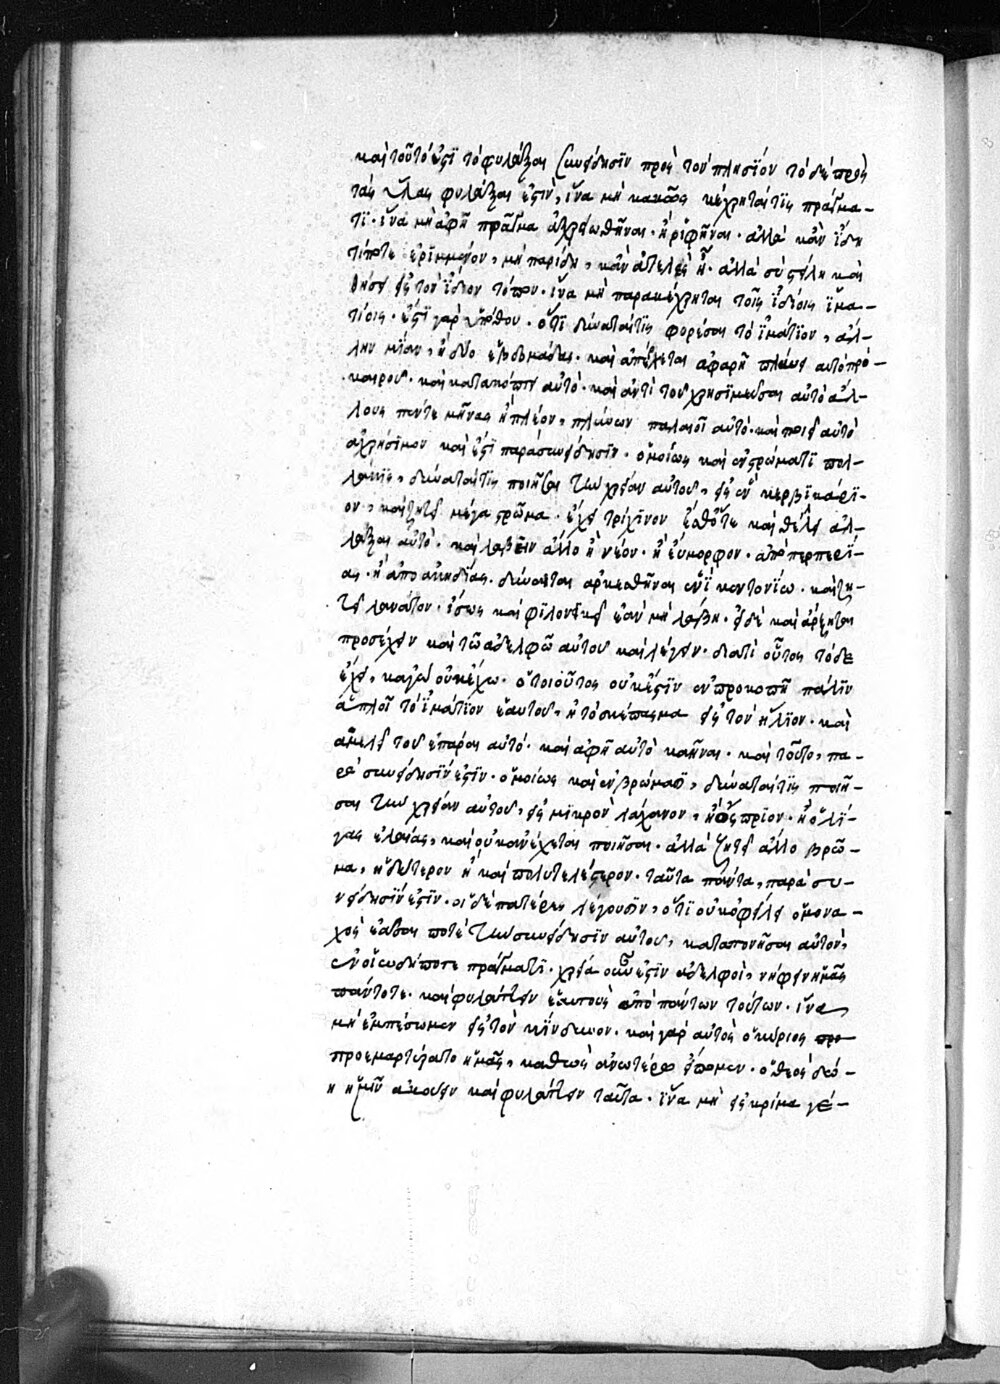 καὶ τοῦτό ἐστϊ τὸ φυλάξαι συνείδησϊν πρὸς τὸν πλησϊόν τὸ δὲ πρὸς
τὰς ὕλας φυλάξαι ἐστὶν, ἵνα μὴ κακῶς κέχρηταί τϊς πράγμα-
τϊ · ἵνα μὴ ἀφῇ πρᾶγμα ἀχρειωθῆναι · ἢ ριφῆναι · ἀλλὰ κἂν ἴδῃ
τίποτε ἐρϊμμένον, μὴ παρίδῃ, κἂν εὐτελὲς ᾖ · ἀλλὰ συστείλῃ καὶ
θήσει εἰς τὸν ἴδϊον τόπον · ἵνα μὴ παρακέχρηται τοῖς ἰδίοις ἱμα-
τίοις · ἐστὶ γὰρ ὅπου · ὅτϊ δύναταί τϊς φορέσαι τὸ ἱμάτϊον, ἄλ-
λην μϊαν, ἢ δύο ἑβδομάδας · καὶ ἀπέρχεται ἀφαρῇ πλύνει αὐτὸ πρὸ
καιροῦ · καὶ κατακόπτει αὐτό · καὶ ἀντὶ τοῦ χρησϊμεῦσαι αὐτὸ ἄλ-
λους πέντε μῆνας ἢ πλέον, πλύνων παλαιοῖ αὐτὸ · καὶ ποιεῖ αὐτὸ
ἄχρήσϊμον καὶ ἐστϊ παρὰ συνείδησϊν · ὁμοίως καὶ ἐν στρώματϊ πολ-
λάκϊς, δύναταί τϊς ποιῆσαι τὴν χρείαν αὐτοῦ, εἰς ἓν κερβϊκάρϊ-
ον, καὶ ζητεῖ μέγα στρῶμα · ἔχει τρίχϊνον ἔσθ ὅτε καὶ θέλει ἀλ-
λάξαι αὐτὸ · καὶ λαβεῖν ἄλλο ἢ νέον · ἢ εὔμορφον · ἀπὸ περπερϊ-
ας · ἢ ἀπὸ ἀκηδίας · δύναται ἀρκεσθῆναι ἑνὶ κεντονίῳ · καὶ ζη-
τεῖ λενάτον · ἴσως καὶ φϊλονϊκεῖ ἐὰν μὴ λάβῃ · εἰ δὲ καὶ ἄρξηται
προσέχειν καὶ τῶ ἀδελφῶ αὐτοῦ καὶ λέγειν · διατὶ οὗτος τόδε
ἔχει, καγὼ οὐκ ἔχω · ὁ τοιοῦτος οὐκ ἔστϊν ἐν προκοπῇ πάλϊν
ἁπλοῖ τὸ ἱμάτϊον ἑαυτοῦ, ἢ τὸ σκέπασμα εἰς τὸν ἥλϊον · καὶ
ἀμελεῖ τοῦ ἐπάραι αὐτό · καὶ ἀφῇ αὐτὸ καῆναι · καὶ τοῦτο, πα-
ρὰ συνείδησϊν ἐστϊν · ὁμοίως καὶ ἐν βρώμασϊ, δύναταί τϊς ποιῆ-
σαι τὴν χρείαν αὐτοῦ, εἰς μϊκρὸν λάχανον, ἢ ὄσπρϊον · ἢ ὀλί-
γας ἐλαίας, καὶ οὐκ ἀνέχεται ποιῆσαι · ἀλλὰ ζητεῖ ἄλλο βρῶ-
μα, ἡδύτερον ἢ καὶ πολυτελέστερον · ταῦτα πάντα, παρὰ συ-
νείδησϊν ἐστϊν · οἱ δὲ πατέρες λέγουσϊν, ὅτϊ οὐκ ὀφείλει ὁ μονα-
χὸς ἐᾶσαι ποτὲ τὴν συνείδησϊν αὐτοῦ, καταπονῆσαι αὐτὸν,
ἐν οἱωδήποτε πράγματϊ · χρεία οὖν ἐστϊν ἀδελφοὶ, νήφειν ἡμᾶς
πάντοτε · καὶ φυλάττειν ἑαυτοὺς ἀπὸ πάντων τούτων · ἵνα
μὴ ἐμπέσωμεν εἰς τὸν κϊνδυνον · καὶ γὰρ αὐτὸς ὁ κύριος προ
προεμαρτύρατο ἡμᾶς, καθὼς ἀνωτέρω εἴπομεν · ὁ θεὸς δώ-
η ἡμῖν ἀκούειν καὶ φυλάττειν ταῦτα · ἵνα μὴ εἰς κρίμα γέ-